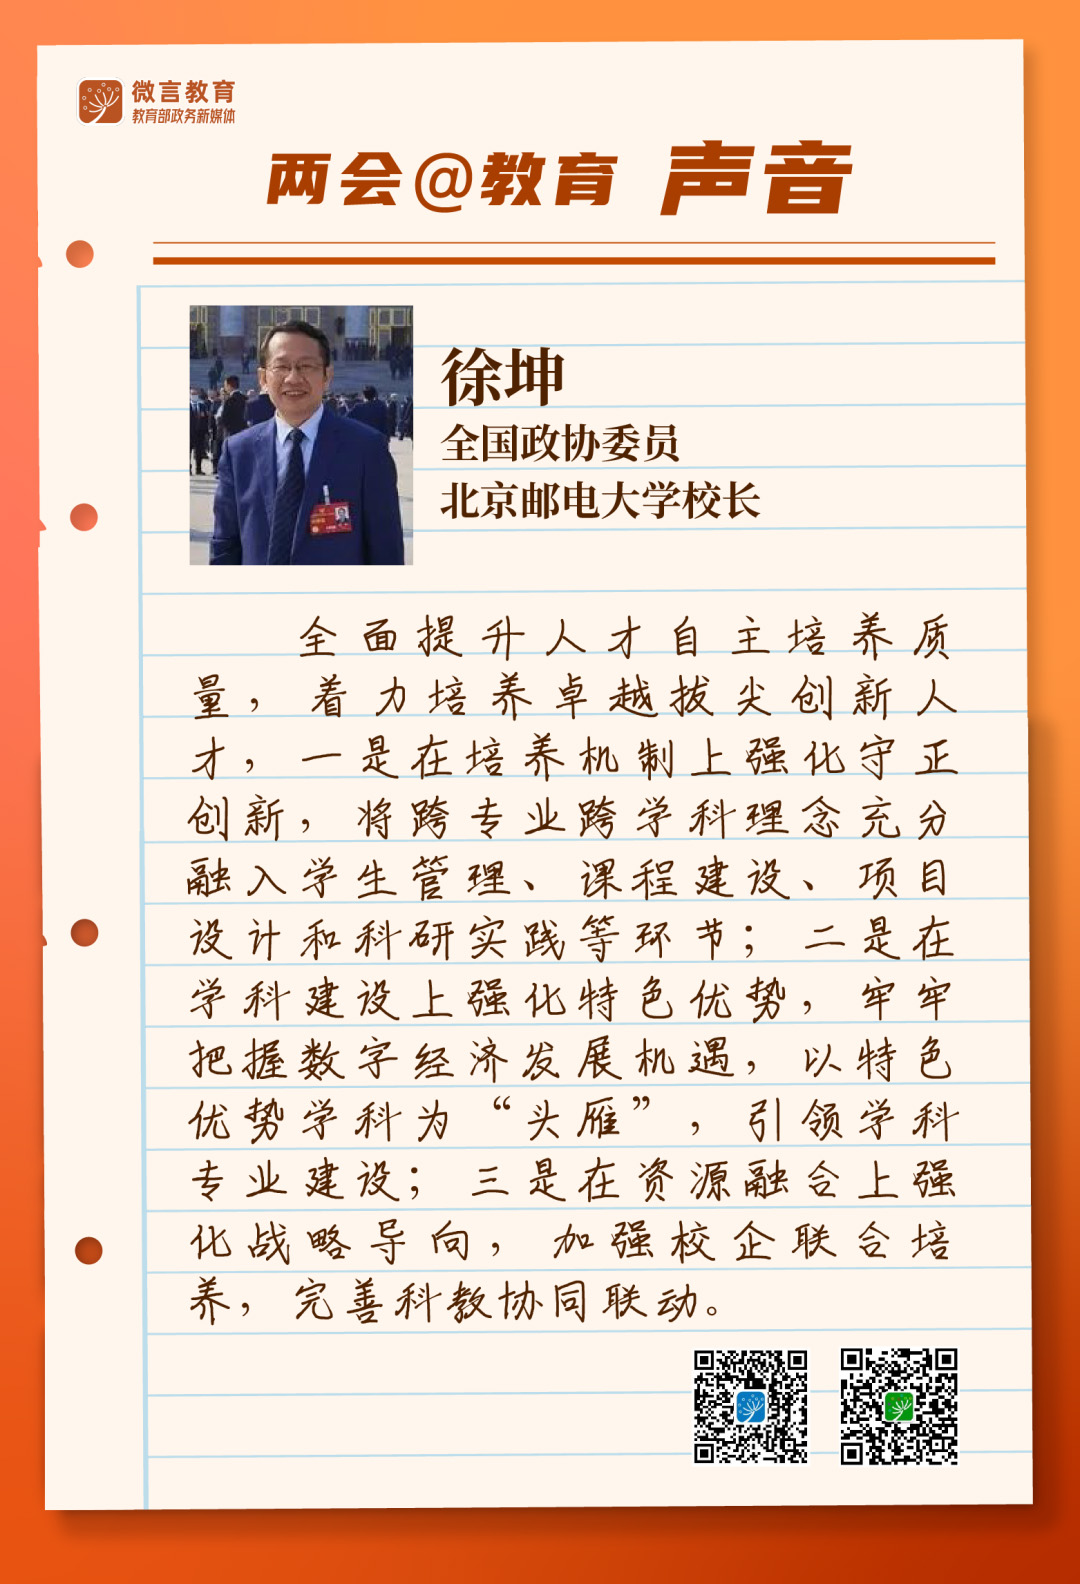 微言教育
教育部政务新媒体
两会@教育 声音
徐坤
全国政协委员
北京邮电大学校长
全面提升人才自主培养质
量，着力培养卓越拔尖创新人
才，一是在培养机制上强化守正
创新，将跨专业跨学科理念充分
融入学生管理、课程建设、项目
设计和科研实践等环节；二是在
学科建设上强化特色优势，牢牢
把握数字经济发展机遇，以特色
优势学科为“头雁”，引领学科
专业建设；三是在资源融合上强
化战略导向，加强校企联合培
养，完善科教协同联动。